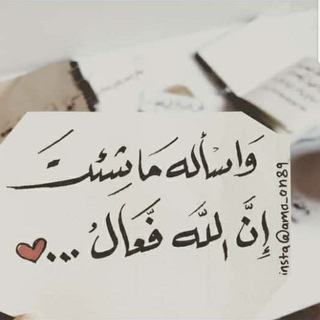 وَاسْأله مَا شِئتَ
إِنَّ اللَّه فَعَّالُ ...
insta@amo_on89